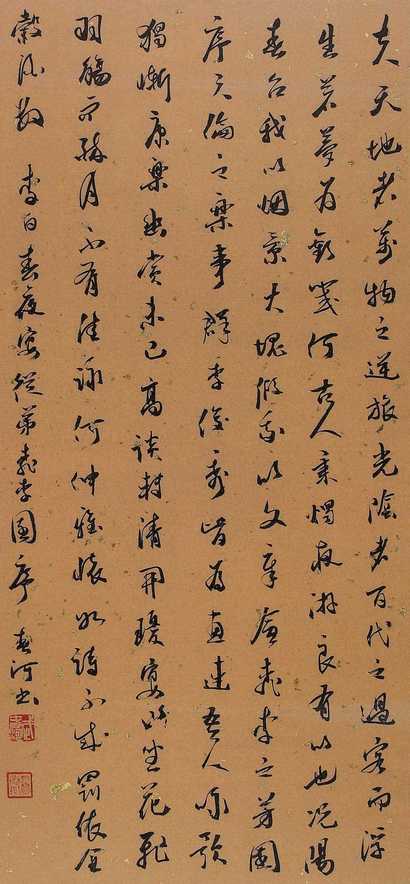 夫天地者萬物之逆旅光陰者百代之過客而浮
生若夢為歡幾何古人秉燭夜游良有以也況陽
春召我以烟景大塊假我以文章會桃李之芳園
序天倫之樂事群季俊秀皆為惠連吾人詠歌
獨慚康樂幽賞未已高談轉清開瓊宴以坐花飛
羽觴而醉月不有佳詠何伸雅懷如詩不成罰依金
穀酒數 李白春夜宴從弟桃李園序 春河书